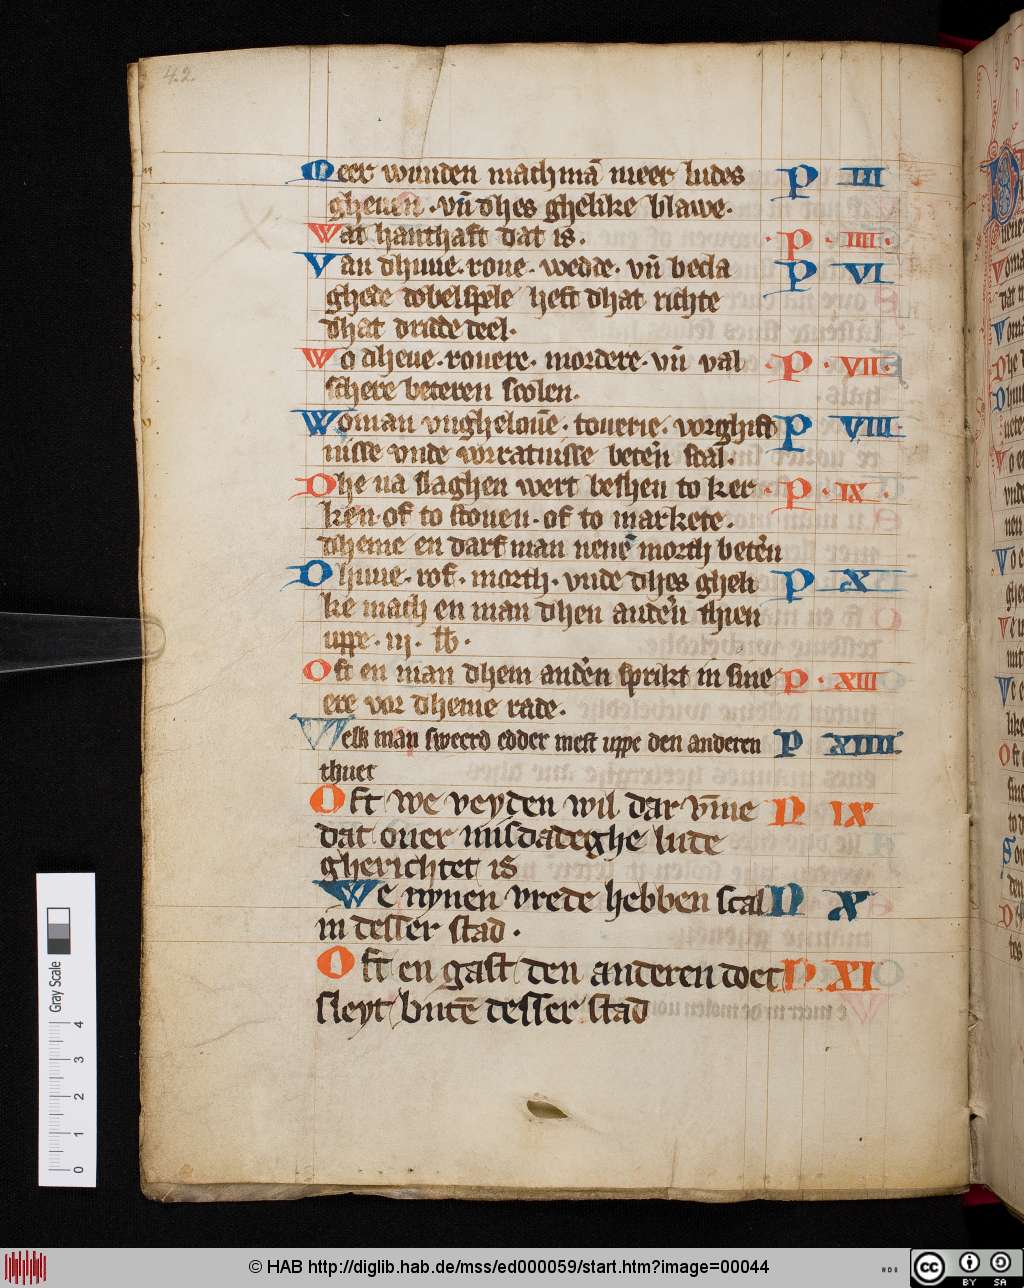 42.
Meer wunden mach mā meer ludes P III
gheuen · vn̄ dhes ghelike blawe·
Wat hanthaft dat is· · P · IIII ·
Van dhuue· roue· wedde· vn̄ becla P VI
ghede dobelspele heft dhat richte
dhat dridde deel·
Wo dheue· rouere· mordere· vn̄ val · P · VII·
schere beteren scolen·
Woman vnghelouē· touerie· vorghift P VIII
nisse vnde vorratnisse betēn scal·
Dhe na slaghen wert besben to ker · P · IX ·
ken· of to stouen· of to markete·
dheme en darf man nenē morth betēn
Dhuue· rof· morth· vnde dhes gheli P X
ke mach en man dhen andēn thien
uppe· III· lb·
Oft en man dhem andēn sprikt in sine P · XIII
ere vor dheme rade·
Welk man sweerd edder mest uppe den anderen P XIIII
thuet
Oft we veyden wil dar v̄me N IX
dat ouer misdadeghe lude
gherichtet is
We nynen vrede hebben scal N X
in desser stad ·
Oft en gast den anderen doet N XI
sleyt butē desser stad
Gray Scale
4
3
2
1
0
© HAB http://diglib.hab.de/mss/ed000059/start.htm?image=00044
cc BY SA